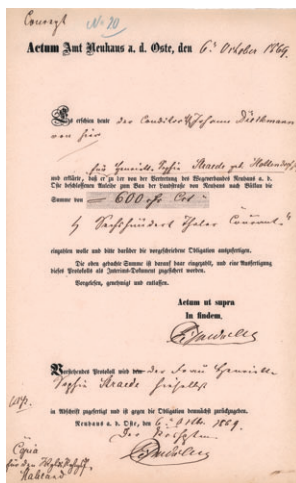 Concept
No 20
Actum Amt Neuhaus a. d. Oste, den 6. October 1869.
Es erschien heute der Conditor Johann Dieckmann
von hier
für Henriette Sophie Straede geb. Hollendorf
und erklärte, daß er zu der von der Vertretung des Wegeverbandes Neuhaus a. d.
Oste beschlossenen Anleihe zum Bau der Landstraße von Neuhaus nach Bülkau die
Summe von = 600 Crt =
Sechshundert Thaler Courant
einzahlen wolle und bitte darüber die vorgeschriebene Obligation auszufertigen.
Die oben gedachte Summe ist darauf baar eingezahlt, und eine Ausfertigung
dieses Protokolls als Interims-Dokument zugesichert worden.
Vorgelesen, genehmigt und entlassen.
Actum ut supra
In fidem,
Vorstehendes Protokoll wird der Frau Henriette
Sophie Straede hieselbst
in Abschrift zugefertigt und ist gegen die Obligation demnächst zurückzugeben.
Neuhaus a. d. Oste, den 6. Octbr. 1869.
Copia
für den